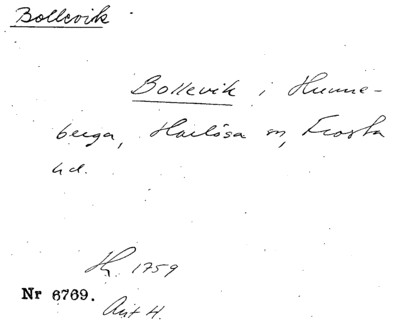 Bollevik
Bollevik i Hunne-
berga, Harlösa sn, Frosta
hd.
Hf. 1759
Nr 6769.
Avt H.